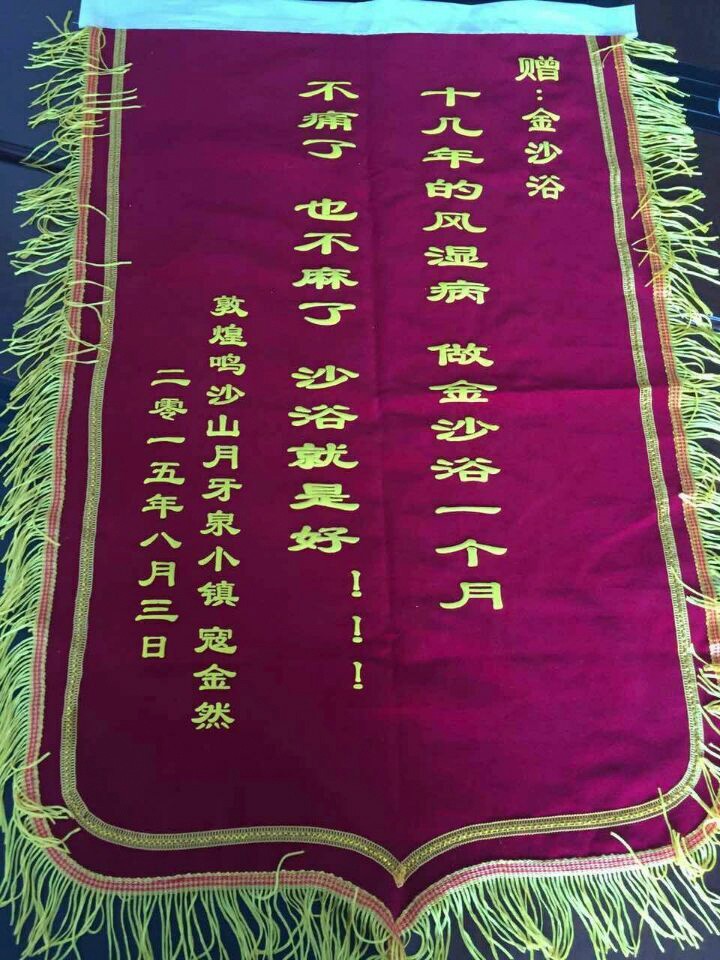 赠：金沙浴
十几年的风湿病 做金沙浴一个月
不痛了 也不麻了 沙浴就是好！！！
敦煌鸣沙山月牙泉小镇 寇金然
二零一五年八月三日